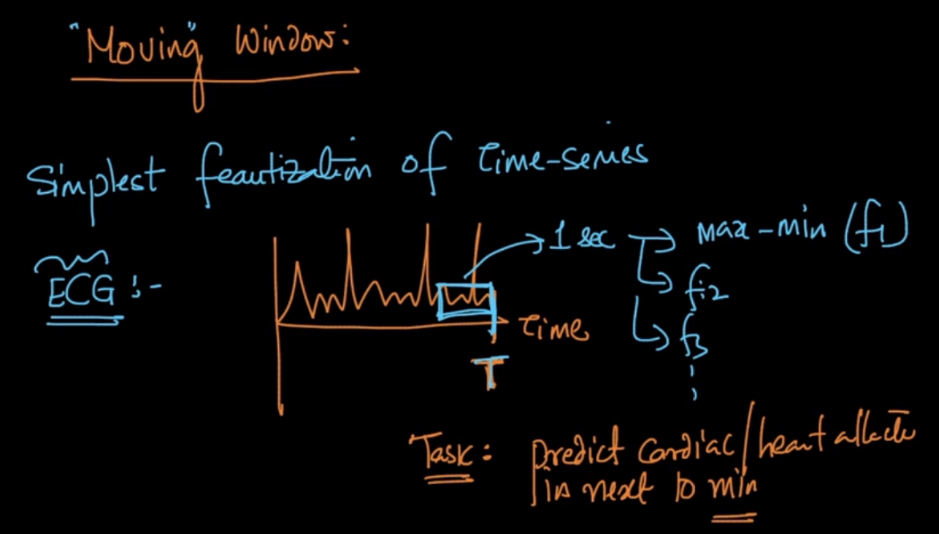 "Moving" Window:
Simplest feautization of time-series
ECG :-
1 sec → max-min (f1)
fi2
f3
time
T
Task: predict cardiac/heart attacks
in next 10 min